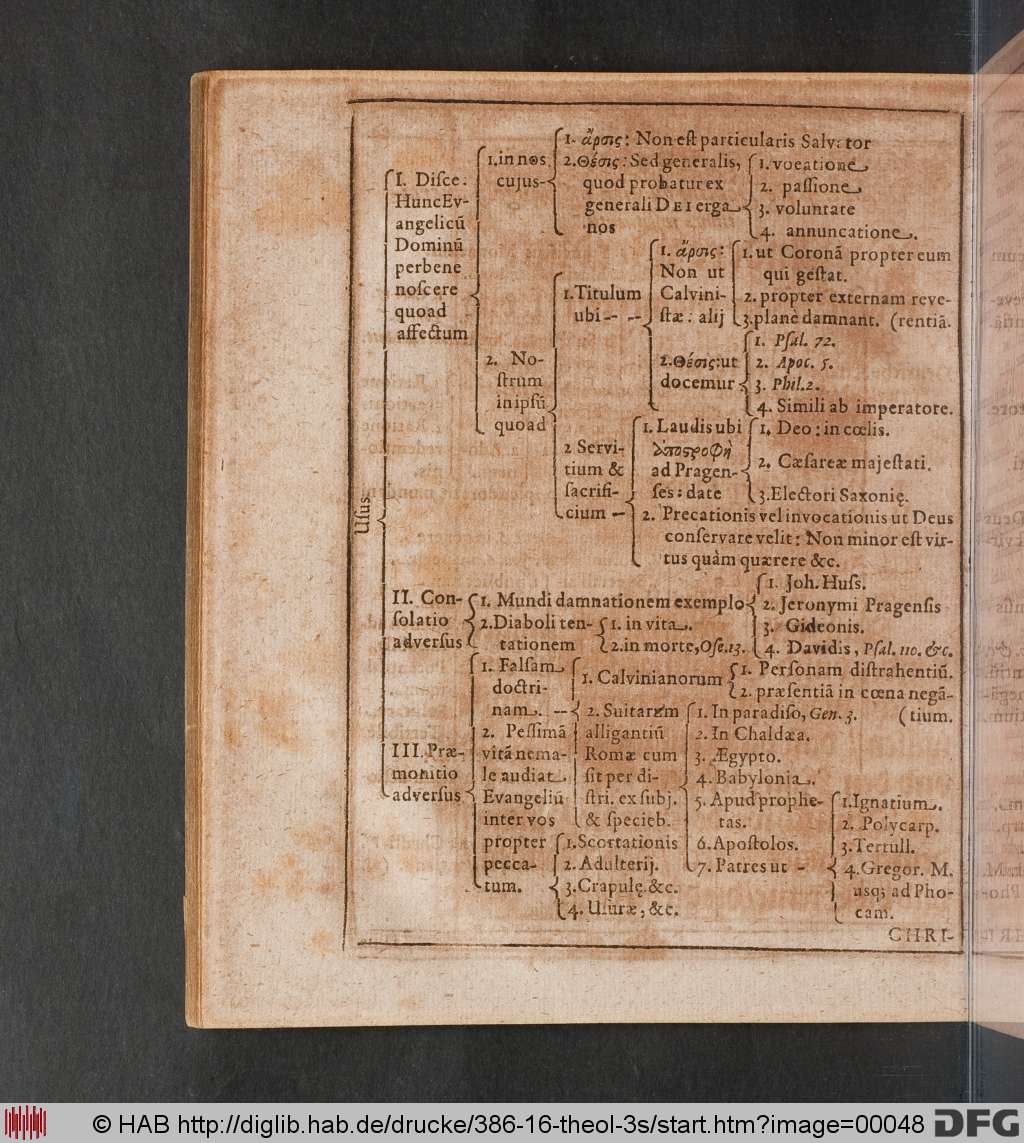 Usus.
I. Disce:
HuncEv-
angelicū
Dominū
perbene
noscere
quoad
affectum
1. in nos
cujus-
1. ἄρσις: Non est particularis Salvator
2. Θέσις: Sed generalis,
quod probatur ex
generali DEI erga
nos
1. vocatione
2. passione
3. voluntate
4. annuncatione.
2. No-
strum
in ipsū
quoad
1. Titulum
ubi -- --
1. ἄρσις:
Non ut
Calvini-
stæ: alij
1. ut Coronā propter eum
qui gestat.
2. propter externam reve-
3. planè damnant. (rentiā.
2. Θέσις: ut
docemur
1. Psal. 72.
2. Apoc. 5.
3. Phil. 2.
4. Simili ab imperatore.
2 Servi-
tium &
sacrifi-
cium --
1. Laudis ubi
ἀποστροφὴ
ad Pragen-
ses: date
1. Deo: in cœlis.
2. Cæsareæ majestati.
3. Electori Saxonię.
2. Precationis vel invocationis ut Deus
conservare velit: Non minor est vir-
tus quàm quærere &c.
II. Con-
solatio
adversus
1. Mundi damnationem exemplo
1. Joh. Huss.
2. Jeronymi Pragensis
3. Gideonis.
4. Davidis, Psal. 110. &c.
2. Diaboli ten-
tationem
1. in vita.
2. in morte, Ose. 13.
III. Præ-
monitio
adversus
1. Falsam
doctri-
nam. --
1. Calvinianorum
1. Personam distrahentiū.
2. præsentiā in cœna negā-
(tium.
2. Suitarum
alligantiū
Romæ cum
sit per di-
stri. ex subj.
& specieb.
1. In paradiso, Gen. 3.
2. In Chaldæa.
3. Ægypto.
4. Babylonia.
5. Apud prophe-
tas.
6. Apostolos.
7. Patres ut -
1. Ignatium.
2. Polycarp.
3. Tertull.
4. Gregor. M.
usq; ad Pho-
cam.
2. Pessimā
vitā ne ma-
le audiat
Evangeliū
inter vos
propter
pecca-
tum.
1. Scortationis
2. Adulterij.
3. Crapulę &c.
4. Usuræ, &c.
CHRI-
© HAB http://diglib.hab.de/drucke/386-16-theol-3s/start.htm?image=00048
DFG